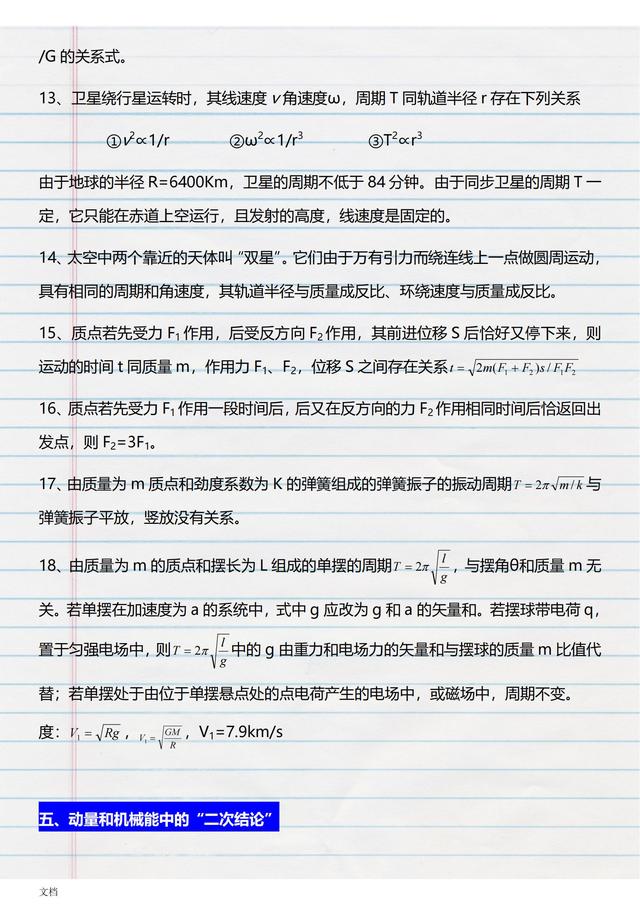 /G 的关系式。
13、卫星绕行星运转时，其线速度 v 角速度ω，周期 T 同轨道半径 r 存在下列关系
①v²∝1/r ②ω²∝1/r³ ③T²∝r³
由于地球的半径 R=6400Km，卫星的周期不低于 84 分钟。由于同步卫星的周期 T 一
定，它只能在赤道上空运行，且发射的高度，线速度是固定的。
14、太空中两个靠近的天体叫“双星”。它们由于万有引力而绕连线上一点做圆周运动，
具有相同的周期和角速度，其轨道半径与质量成反比、环绕速度与质量成反比。
15、质点若先受力 F₁作用，后受反方向 F₂作用，其前进位移 S 后恰好又停下来，则
运动的时间 t 同质量 m，作用力 F₁、F₂，位移 S 之间存在关系 t = √2m(F₁ + F₂)s / F₁F₂
16、质点若先受力 F₁作用一段时间后，后又在反方向的力 F₂作用相同时间后恰返回出
发点，则 F₂=3F₁。
17、由质量为 m 质点和劲度系数为 K 的弹簧组成的弹簧振子的振动周期 T = 2π√m / k 与
弹簧振子平放，竖放没有关系。
18、由质量为 m 的质点和摆长为 L 组成的单摆的周期 T = 2π√l/g，与摆角θ和质量 m 无
关。若单摆在加速度为 a 的系统中，式中 g 应改为 g 和 a 的矢量和。若摆球带电荷 q，
置于匀强电场中，则 T = 2π√l/g 中的 g 由重力和电场力的矢量和与摆球的质量 m 比值代
替；若单摆处于由位于单摆悬点处的点电荷产生的电场中，或磁场中，周期不变。
度：V₁ = √Rg，V₁=√GM/R，V₁=7.9km/s
五、动量和机械能中的“二次结论”
文档